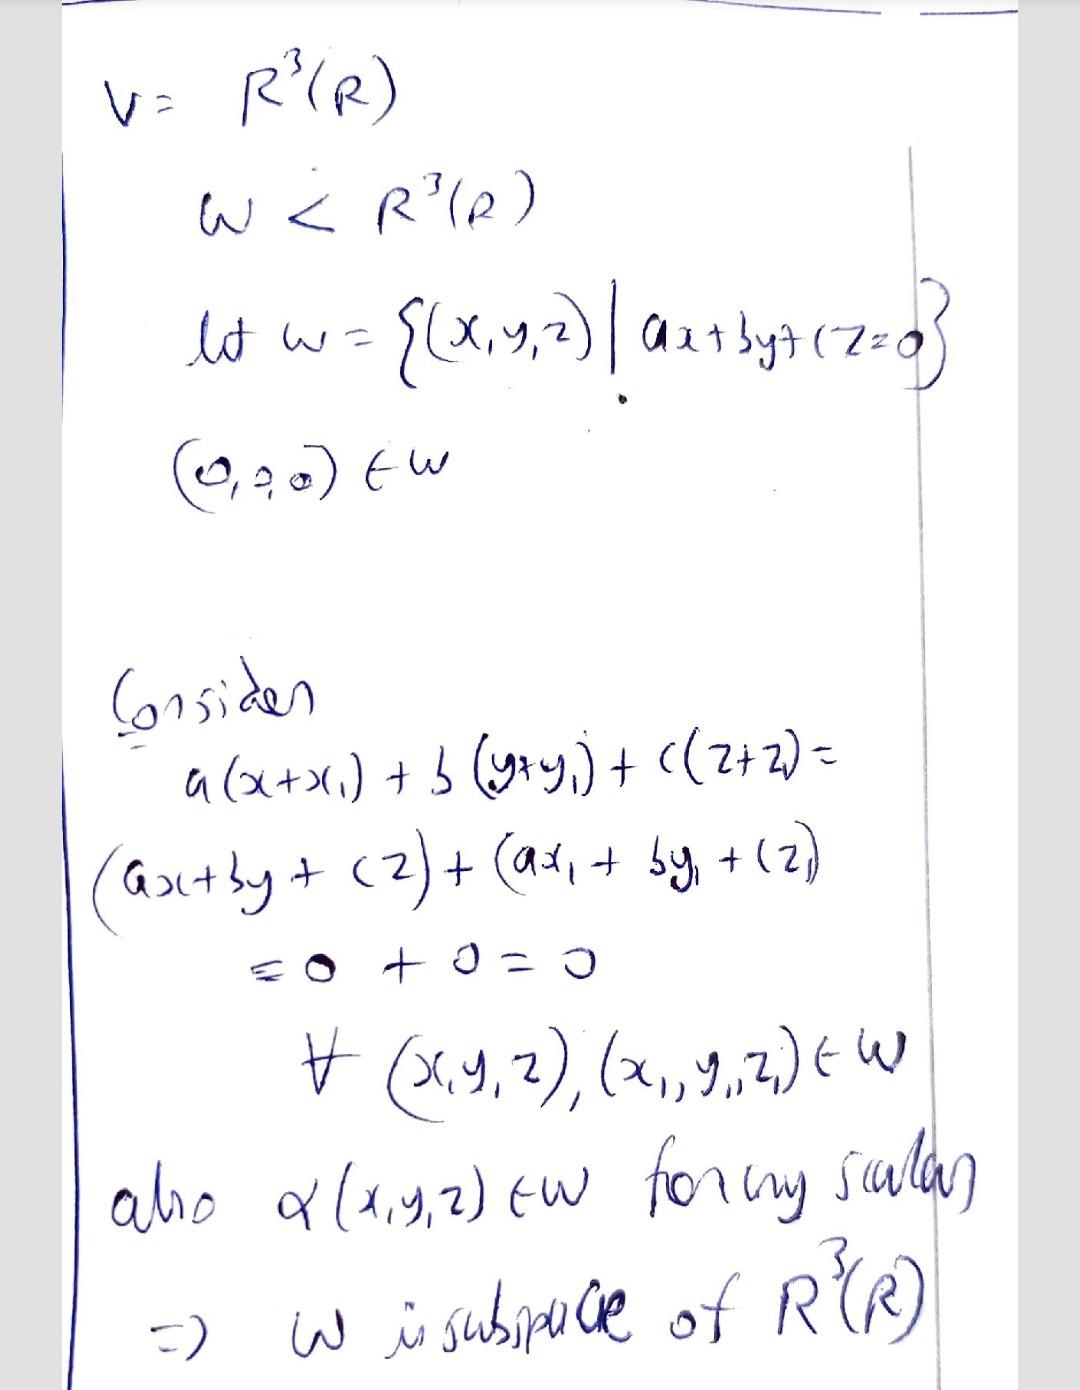 V = R³(R)
W < R³(R)
let W = {(x,y,z) | ax+by+cz=0}
(0,0,0) ∈ W
Consider
a(x+x₁) + b(y+y₁) + c(z+z₁) =
(ax+by+cz) + (ax₁ + by₁ + cz₁)
= 0 + 0 = 0
∀ (x,y,z), (x₁,y₁,z₁) ∈ W
also α(x,y,z) ∈ W for any scalar
=> W is subspace of R³(R)